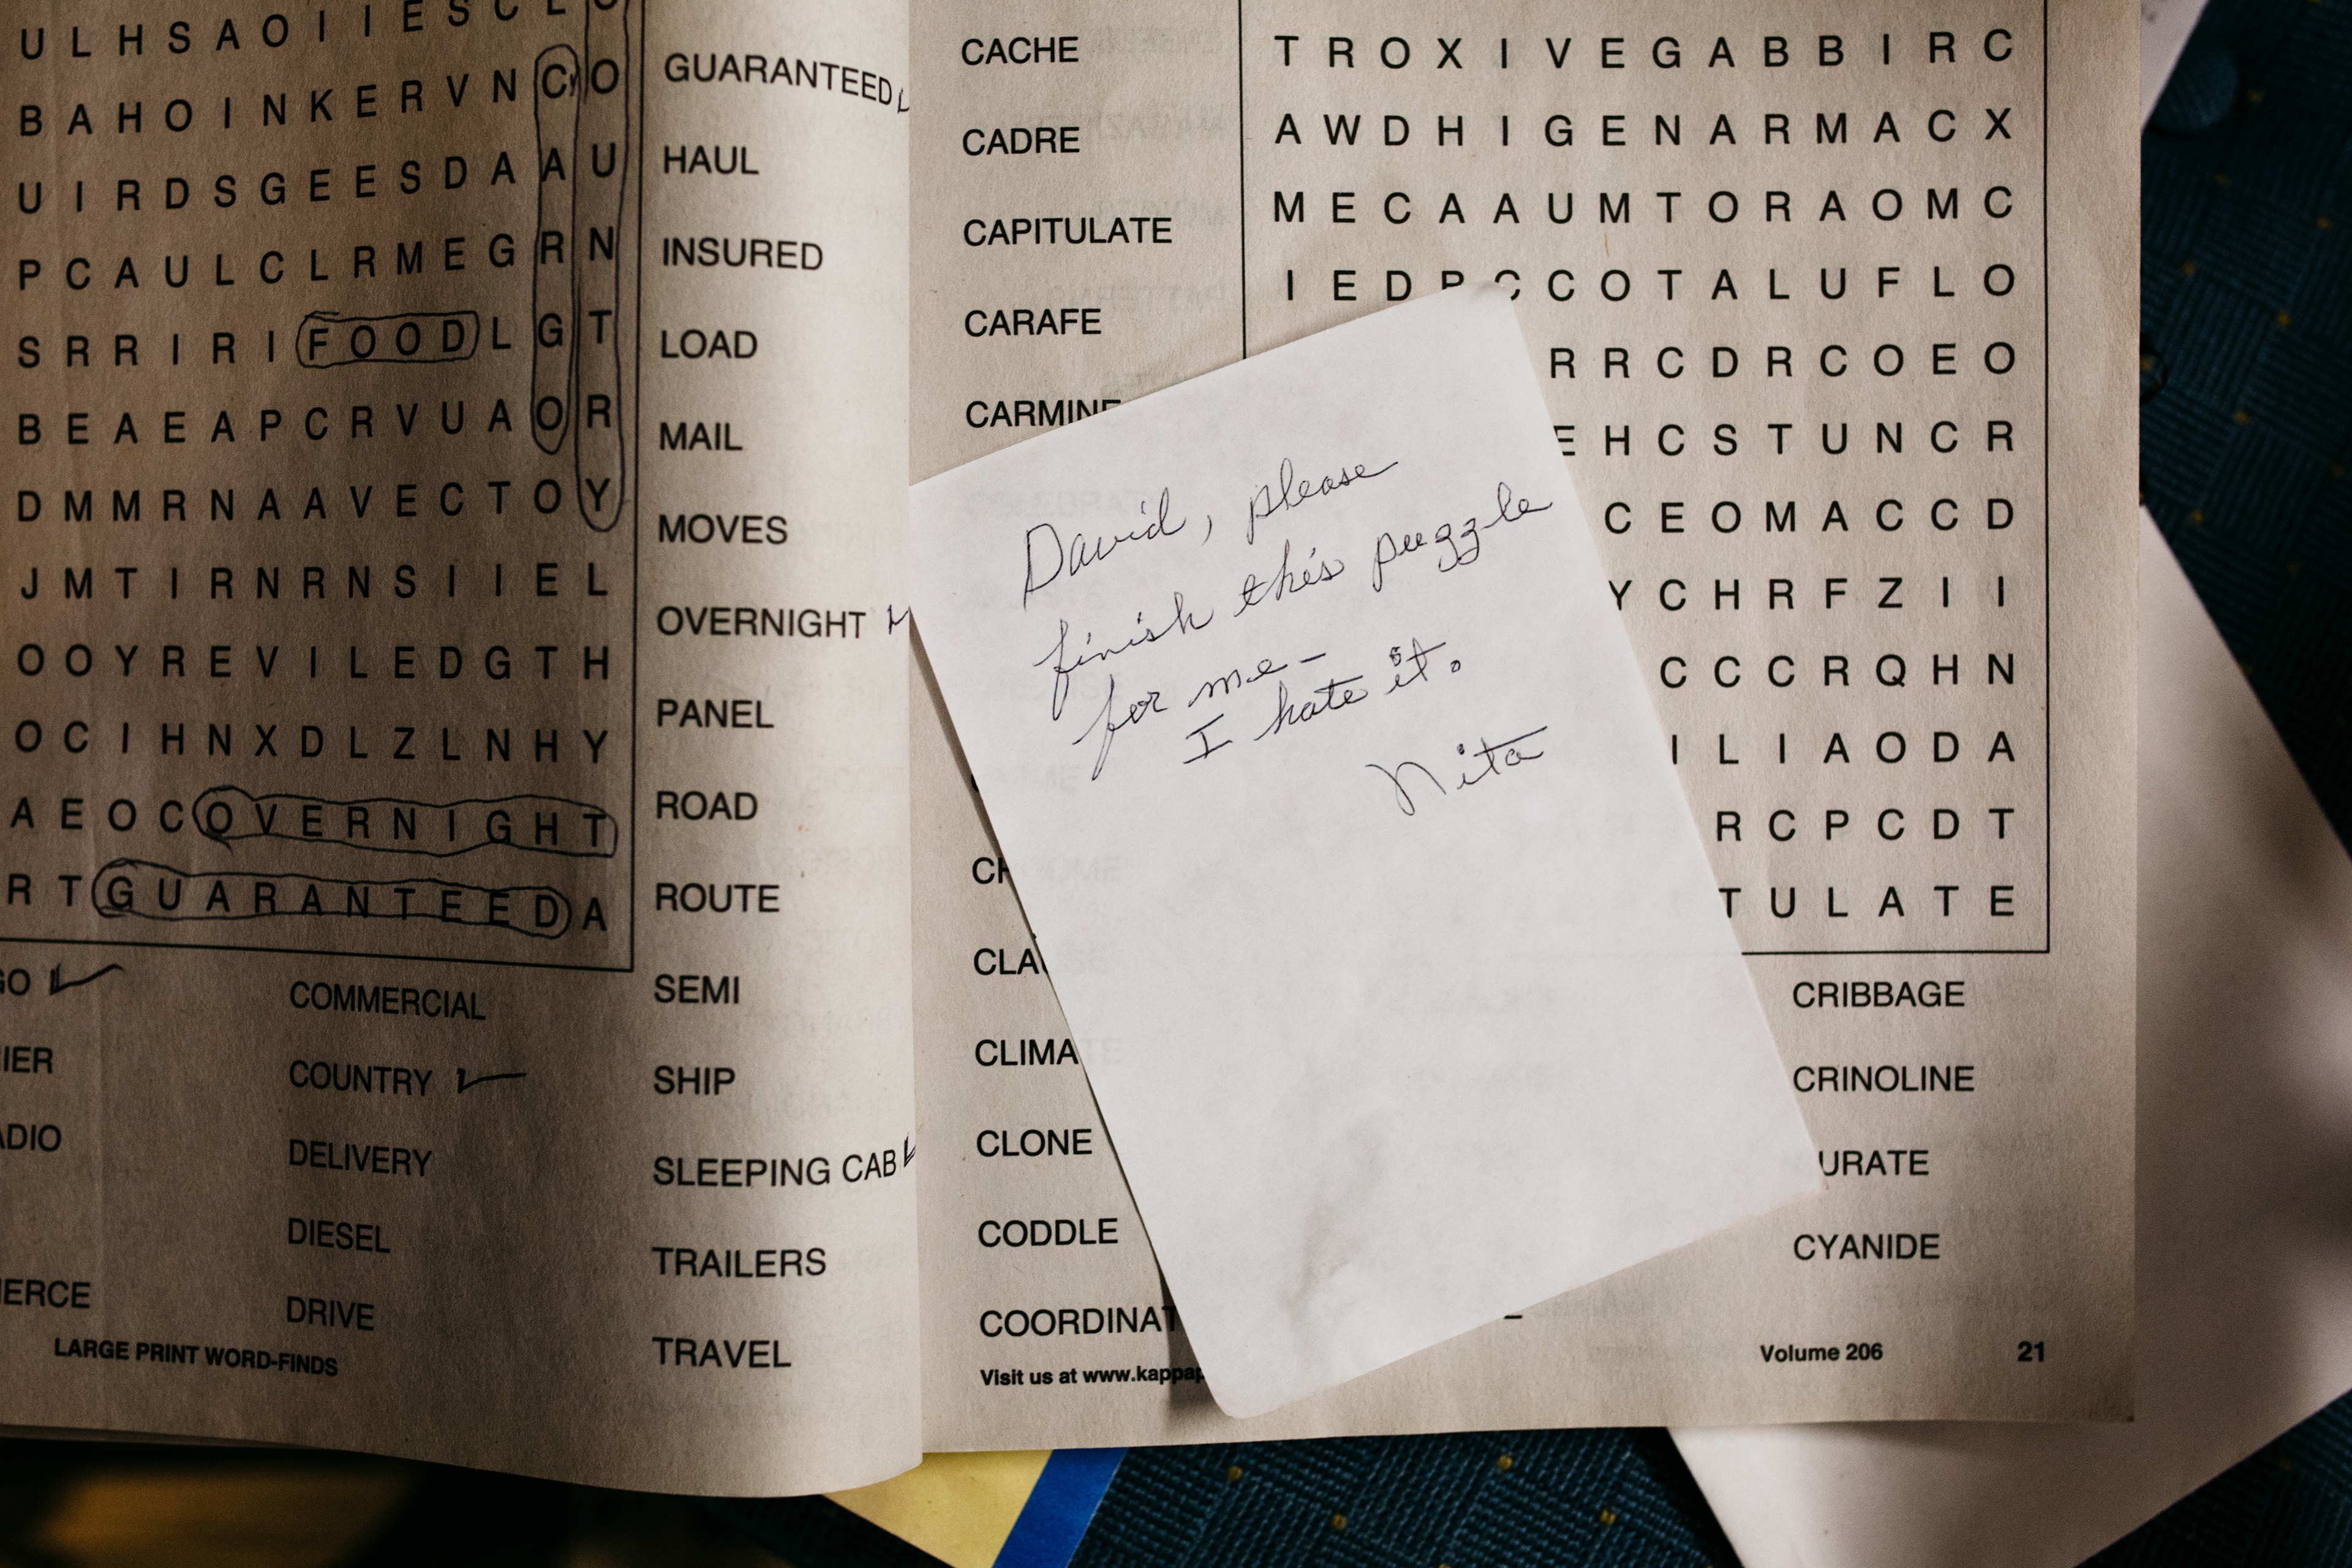 U L H S A O I I E S C L O
B A H O I N K E R V N C O
U I R D S G E E S D A A U
P C A U L C L R M E G R N
S R R I R I F O O D L G T
B E A E A P C R V U A O R
D M M R N A A V E C T O Y
J M T I R N R N S I I E L
O O Y R E V I L E D G T H
O C I H N X D L Z L N H Y
A E O C O V E R N I G H T
R T G U A R A N T E E D A
GO
IER
ADIO
ERCE
COMMERCIAL
COUNTRY
DELIVERY
DIESEL
DRIVE
LARGE PRINT WORD-FINDS
GUARANTEED
HAUL
INSURED
LOAD
MAIL
MOVES
OVERNIGHT
PANEL
ROAD
ROUTE
SEMI
SHIP
SLEEPING CAB
TRAILERS
TRAVEL
CACHE
CADRE
CAPITULATE
CARAFE
CARMINE
CH
CLA
CLIMA
CLONE
CODDLE
COORDINAT
Visit us at www.kappap
T R O X I V E G A B B I R C
A W D H I G E N A R M A C X
M E C A A U M T O R A O M C
I E D P C C O T A L U F L O
R R C D R C O E O
E H C S T U N C R
C E O M A C C D
Y C H R F Z I I
C C C R Q H N
I L I A O D A
R C P C D T
T U L A T E
David, please
finish this puzzle
for me-
I hate it.
Nita
CRIBBAGE
CRINOLINE
URATE
CYANIDE
Volume 206
21